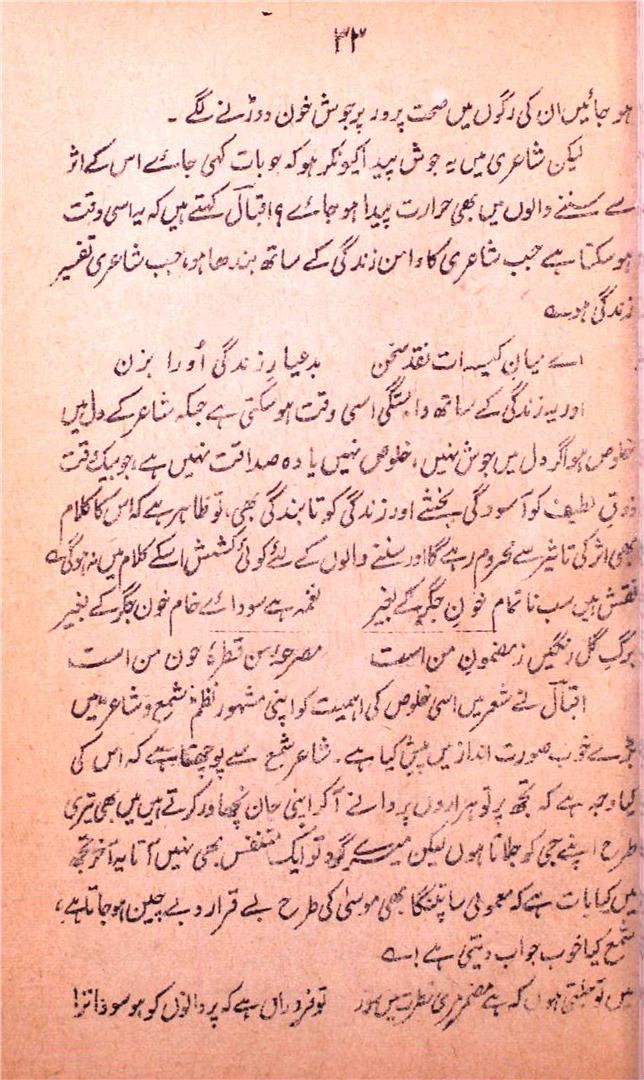 ۳۳
ہو جائیں ان کی رگوں میں صحت پرور پرجوش خون دوڑنے لگے ۔
لیکن شاعری میں یہ جوش پیدا کیونکر ہو کہ جو بات کہی جائے اس کے اثر
سے سننے والوں میں بھی حرارت پیدا ہو جائے ؟ اقبال کہتے ہیں کہ یہ اسی وقت
ہو سکتا ہے جب شاعری کا دامن زندگی کے ساتھ بندھا ہو، جب شاعری تفسیر
زندگی ہو ے
اے میان کیسہ ات نقد سخن بر عیار زندگی اُو را بزن
اور یہ زندگی کے ساتھ وابستگی اسی وقت ہو سکتی ہے جبکہ شاعر کے دل میں
خلوص ہو اگر دل میں جوش نہیں ، خلوص نہیں یا وہ صداقت نہیں ہے، جو بیک وقت
ذوقِ لطیف کو آسودگی بخشے اور زندگی کو تابندگی بھی، تو ظاہر ہے کہ اس کا کلام
بھی اثر کی تاثیر سے محروم رہے گا اور سننے والوں کے لئے کوئی کشش اسکے کلام میں نہ ہوگی ے
نقش ہیں سب ناتمام خونِ جگر کے بغیر نغمہ ہے سودائے خام خون جگر کے بغیر
برگ گل رنگیں ز مضمونِ من است مصرعۂ من قطرۂ خون من است
اقبال نے شعر میں اسی خلوص کی اہمیت کو اپنی مشہور نظم ”شمع و شاعر“ میں
بڑے خوب صورت انداز میں پیش کیا ہے ۔ شاعر شمع سے پوچھتا ہے کہ اس کی
کیا وجہ ہے کہ تجھ پر تو ہزاروں پروانے آ کر اپنی جان نچھاور کرتے ہیں میں بھی تیری
طرح اپنے جی کو جلاتا ہوں لیکن میرے گرد تو ایک متنفس بھی نہیں آتا یہ آخر تجھ
میں کیا بات ہے کہ معمولی سا پتنگا بھی موسیٰ کی طرح بے قرار و بے چین ہو جاتا ہے،
شمع کیا خوب جواب دیتی ہے ! ے
میں تو جلتی ہوں کہ ہے مضمر مری فطرت میں سوز تو فروزاں ہے کہ پروانوں کو ہو سودا ترا